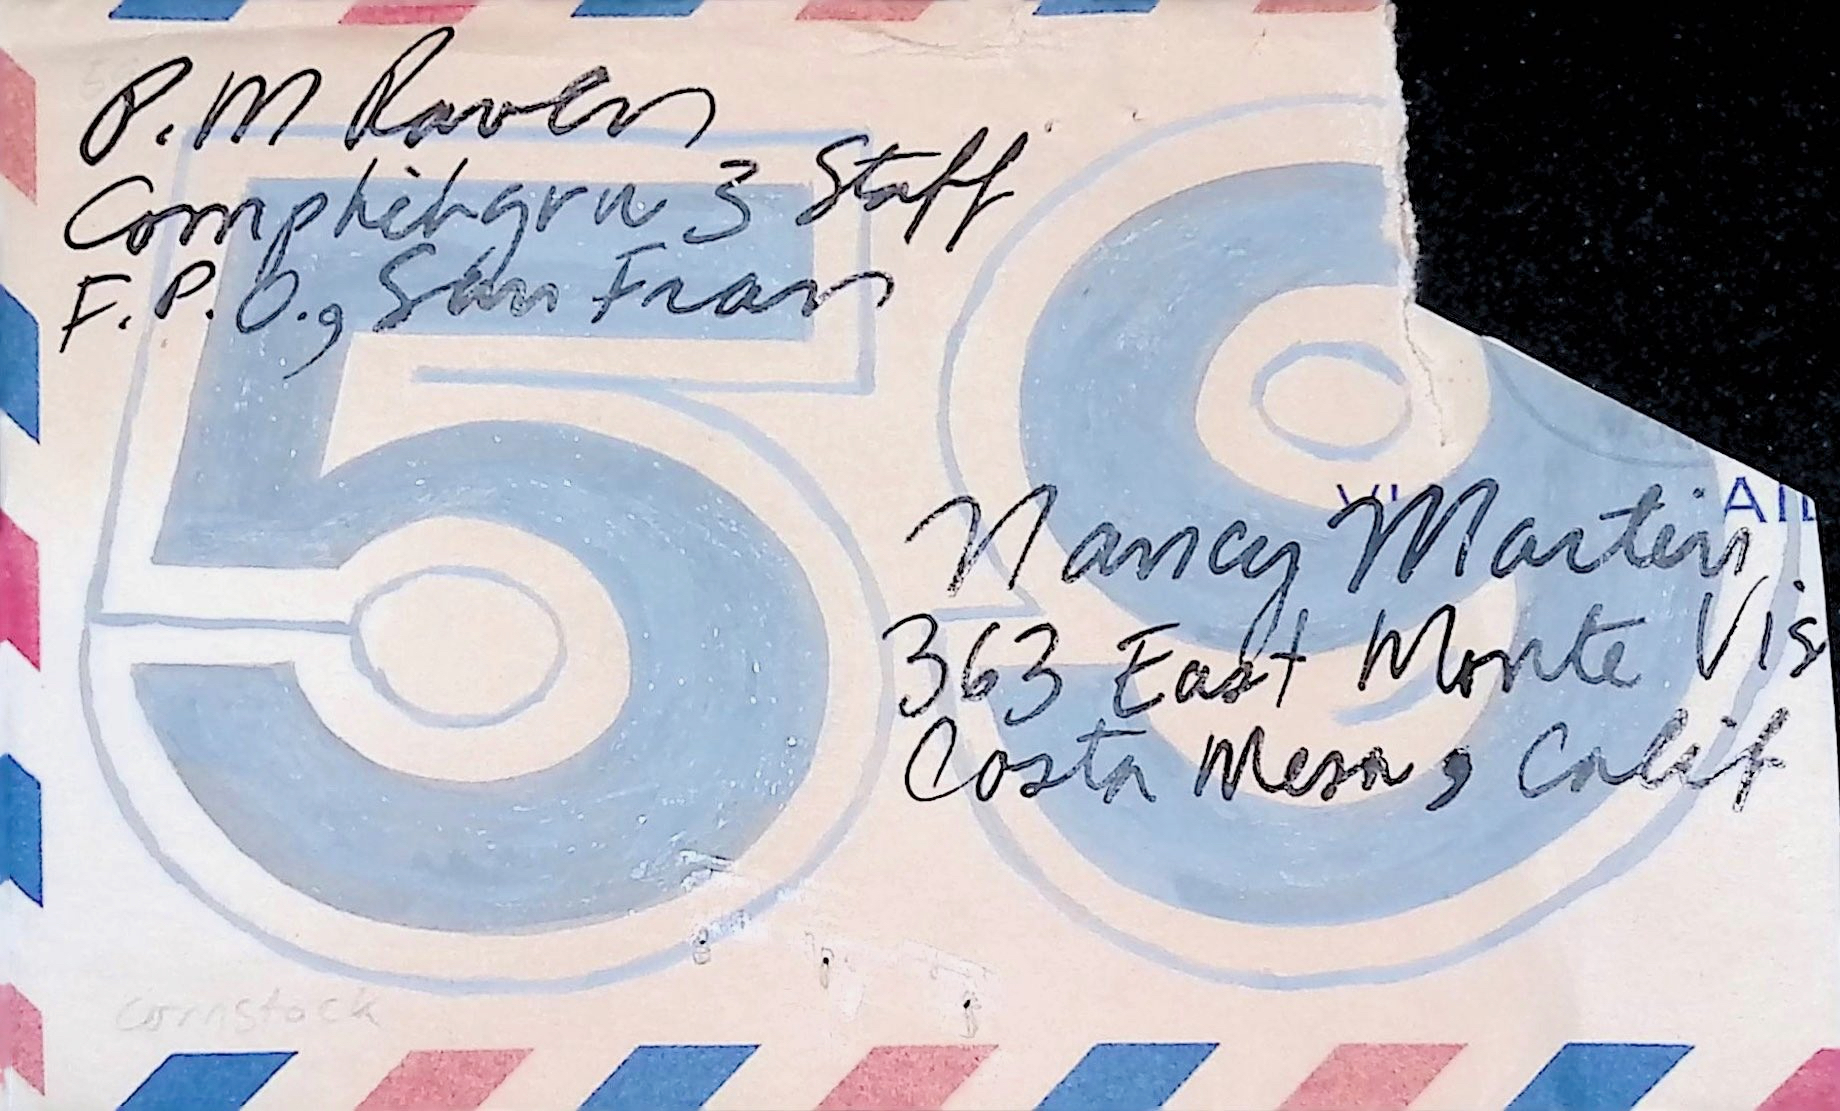 P.M Raven
Comphibgru 3 Staff
F.P.O., San Fran
59
AIL
Nancy Martin
363 East Monte Vis
Costa Mesa, Calif
Comstock